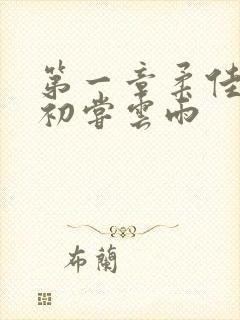 第一章柔佳
初嘗雲雨
布蘭